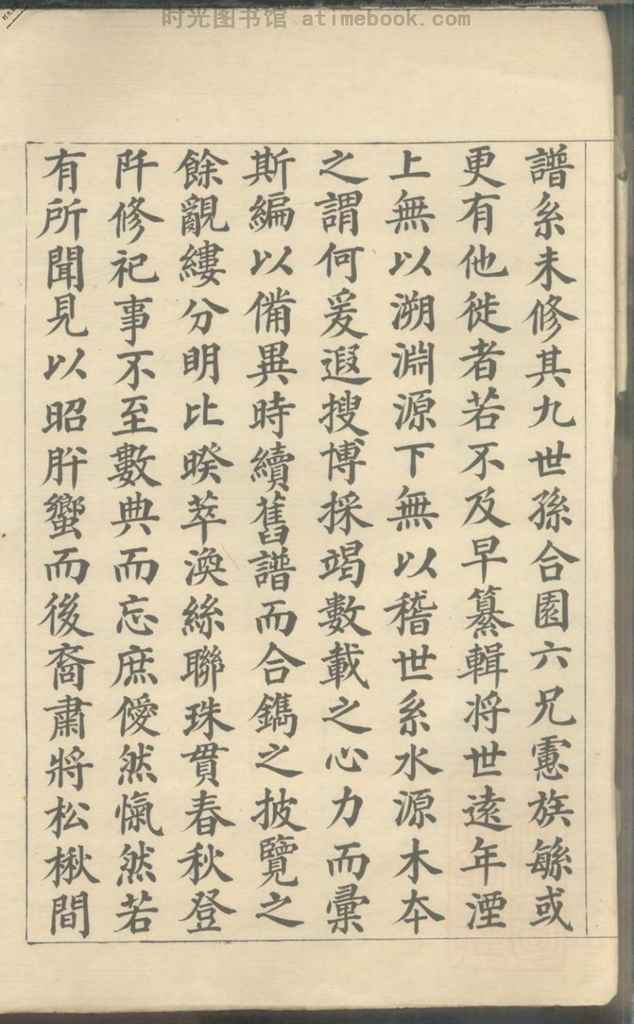 时光图书馆 atimebook.com
譜系未修其九世孫合園六兄慮族緐或
更有他徙者若不及早纂輯将世遠年湮
上無以溯淵源下無以稽世系水源木本
之謂何爰遐搜博採竭數載之心力而彙
斯編以備異時續舊譜而合鐫之披覽之
餘覼縷分明比暌萃渙絲聯珠貫春秋登
阡修祀事不至數典而忘庶僾然愾然若
有所聞見以昭肸蠁而後裔肅將松楸間